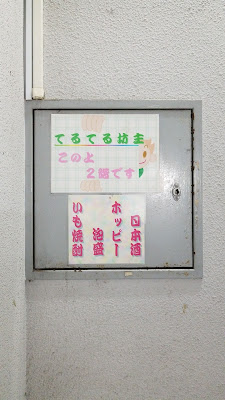 てるてる坊主
この上
2階です!
日本酒
ホッピー
泡盛
いも焼酎